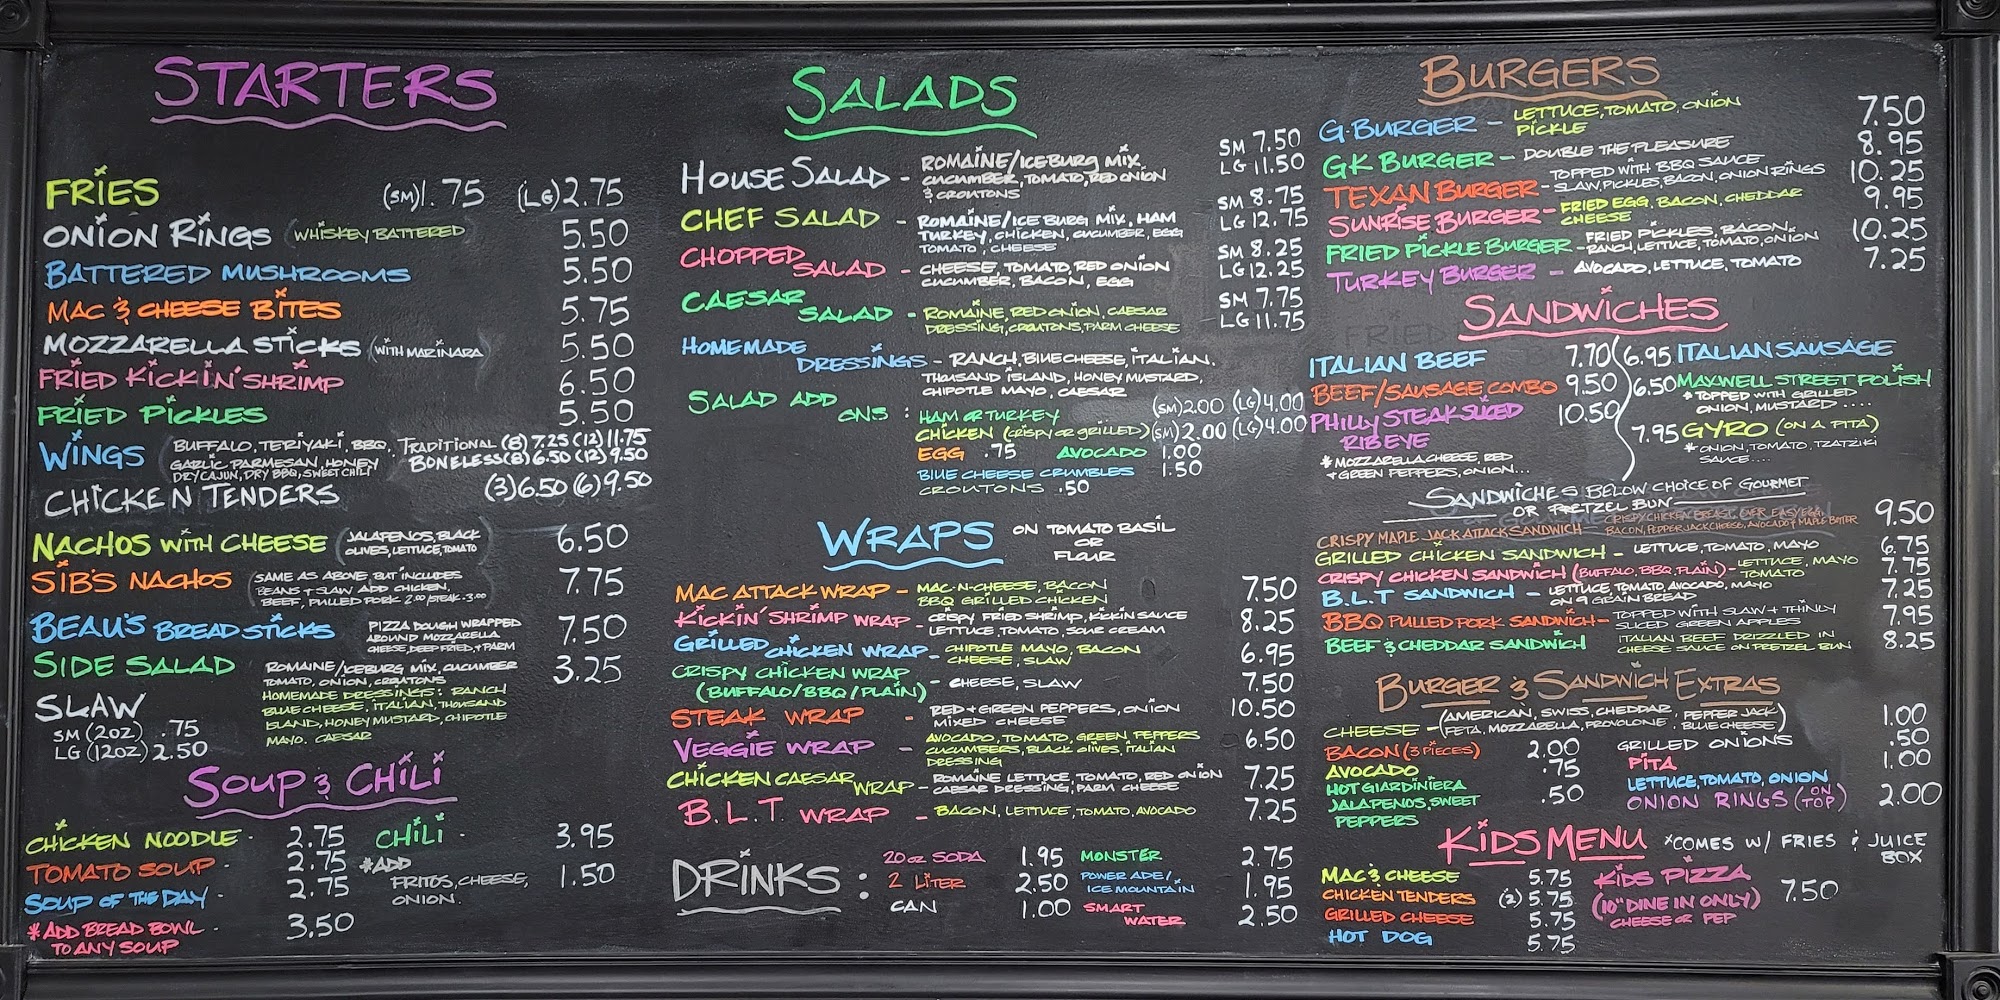 STARTERS
FRIES (SM)1.75 (LG)2.75
ONION RINGS (WHISKEY BATTERED) 5.50
BATTERED MUSHROOMS 5.50
MAC & CHEESE BITES 5.75
MOZZARELLA STICKS (WITH MARINARA) 5.50
FRIED KICKIN' SHRIMP 6.50
FRIED PICKLES 5.50
WINGS BUFFALO, TERIYAKI, BBQ, TRADITIONAL (8) 7.25 (12) 11.75
GARLIC PARMESAN, HONEY BONELESS (8) 6.50 (12) 9.50
DRY CAJUN, DRY BBQ, SWEET CHILI
CHICKEN TENDERS (3) 6.50 (6) 9.50
NACHOS WITH CHEESE (JALAPENOS, BLACK 6.50
OLIVES, LETTUCE, TOMATO)
SIB'S NACHOS (SAME AS ABOVE BUT INCLUDES 7.75
BEANS + SLAW ADD CHICKEN,
BEEF, PULLED PORK 2.00/STEAK - 3.00
BEAU'S BREAD STICKS PIZZA DOUGH WRAPPED 7.50
AROUND MOZZARELLA
CHEESE, DEEP FRIED, + PARM
SIDE SALAD ROMAINE/ICEBURG MIX, CUCUMBER 3.25
TOMATO, ONION, CROATONS
HOMEMADE DRESSINGS: RANCH
BLUE CHEESE, ITALIAN, THOUSAND
ISLAND, HONEY MUSTARD, CHIPOTLE
MAYO, CAESAR
SLAW
SM (2OZ) .75
LG (12OZ) 2.50
SOUP & CHILI
CHICKEN NOODLE - 2.75 CHILI - 3.95
TOMATO SOUP - 2.75 *ADD
FRITOS, CHEESE, 1.50
ONION.
SOUP OF THE DAY - 2.75
*ADD BREAD BOWL - 3.50
TO ANY SOUP
SALADS
HOUSE SALAD - ROMAINE/ICEBURG MIX, SM 7.50
CUCUMBER, TOMATO, RED ONION LG 11.50
& CROUTONS
CHEF SALAD - ROMAINE/ICE BURG MIX, HAM SM 8.75
TURKEY, CHICKEN, CUCUMBER, EGG LG 12.75
TOMATO, CHEESE
CHOPPED SM 8.25
SALAD - CHEESE, TOMATO, RED ONION LG 12.25
CUCUMBER, BACON, EGG
CAESAR SM 7.75
SALAD - ROMAINE, RED ONION, CAESAR LG 11.75
DRESSING, CROUTONS, PARM CHEESE
HOMEMADE
DRESSINGS - RANCH, BLUE CHEESE, ITALIAN,
THOUSAND ISLAND, HONEY MUSTARD,
CHIPOTLE MAYO, CAESAR
SALAD ADD
ONS : HAM OR TURKEY (SM) 2.00 (LG) 4.00
CHICKEN (CRISPY OR GRILLED) (SM) 2.00 (LG) 4.00
EGG .75 AVOCADO 1.00
BLUE CHEESE CRUMBLES 1.50
CROUTONS .50
WRAPS ON TOMATO BASIL
OR
FLOUR
MAC ATTACK WRAP - MAC-N-CHEESE, BACON 7.50
BBQ GRILLED CHICKEN
KICKIN' SHRIMP WRAP - CRISPY FRIED SHRIMP, KICKIN SAUCE 8.25
LETTUCE, TOMATO, SOUR CREAM
GRILLED CHICKEN WRAP - CHIPOTLE MAYO, BACON 6.95
CHEESE, SLAW
CRISPY CHICKEN WRAP - CHEESE, SLAW 7.50
(BUFFALO/BBQ/PLAIN)
STEAK WRAP - RED + GREEN PEPPERS, ONION 10.50
MIXED CHEESE
VEGGIE WRAP - AVOCADO, TOMATO, GREEN PEPPERS 6.50
CUCUMBERS, BLACK OLIVES, ITALIAN
DRESSING
CHICKEN CAESAR WRAP - ROMAINE LETTUCE, TOMATO, RED ONION 7.25
CAESAR DRESSING, PARM CHEESE
B.L.T. WRAP - BACON, LETTUCE, TOMATO, AVOCADO 7.25
DRINKS :
20 OZ SODA 1.95 MONSTER 2.75
2 LITER 2.50 POWER ADE/
ICE MOUNTAIN 1.95
CAN 1.00 SMART
WATER 2.50
BURGERS
G-BURGER - LETTUCE, TOMATO, ONION 7.50
PICKLE
GK BURGER - DOUBLE THE PLEASURE 8.95
TEXAN BURGER - TOPPED WITH BBQ SAUCE 10.25
SLAW, PICKLES, BACON, ONION RINGS
SUNRISE BURGER - FRIED EGG, BACON, CHEDDAR 9.95
CHEESE
FRIED PICKLE BURGER - FRIED PICKLES, BACON, 10.25
RANCH, LETTUCE, TOMATO, ONION
TURKEY BURGER - AVOCADO, LETTUCE, TOMATO 7.25
SANDWICHES
ITALIAN BEEF 7.70
BEEF/SAUSAGE COMBO 9.50
PHILLY STEAK SLICED 10.50
RIBEYE
*MOZZARELLA CHEESE, RED
+ GREEN PEPPERS, ONION...
6.95 ITALIAN SAUSAGE
6.50 MAXWELL STREET POLISH
*TOPPED WITH GRILLED
ONION, MUSTARD ....
7.95 GYRO (ON A PITA)
*ONION, TOMATO, TZATZIKI
SAUCE....
SANDWICHES BELOW CHOICE OF GOURMET
OR PRETZEL BUN
CRISPY MAPLE JACK ATTACK SANDWICH - CRISPY CHICKEN BREAST, OVER EASY EGG, 9.50
BACON, PEPPER JACK CHEESE, AVOCADO + MAPLE BUTTER
GRILLED CHICKEN SANDWICH - LETTUCE, TOMATO, MAYO 6.75
CRISPY CHICKEN SANDWICH (BUFFALO, BBQ, PLAIN) - LETTUCE, MAYO 7.75
TOMATO
B.L.T SANDWICH - LETTUCE, TOMATO, AVOCADO, MAYO 7.25
ON 9 GRAIN BREAD
BBQ PULLED PORK SANDWICH - TOPPED WITH SLAW + THINLY 7.95
SLICED GREEN APPLES
BEEF & CHEDDAR SANDWICH ITALIAN BEEF DRIZZLED IN 8.25
CHEESE SAUCE ON PRETZEL BUN
BURGER & SANDWICH EXTRAS
CHEESE - (AMERICAN, SWISS, CHEDDAR, PEPPER JACK) 1.00
(FETA, MOZZARELLA, PROVOLONE, BLUE CHEESE)
BACON (3 PIECES) 2.00 GRILLED ONIONS .50
AVOCADO .75 PITA 1.00
HOT GIARDINIERA .50 LETTUCE, TOMATO, ONION
JALAPENOS, SWEET ONION RINGS (ON TOP) 2.00
PEPPERS
KIDS MENU *COMES W/ FRIES & JUICE
BOX
MAC & CHEESE 5.75 KIDS PIZZA
CHICKEN TENDERS (2) 5.75 (10" DINE IN ONLY) 7.50
GRILLED CHEESE 5.75 CHEESE OR PEP
HOT DOG 5.75